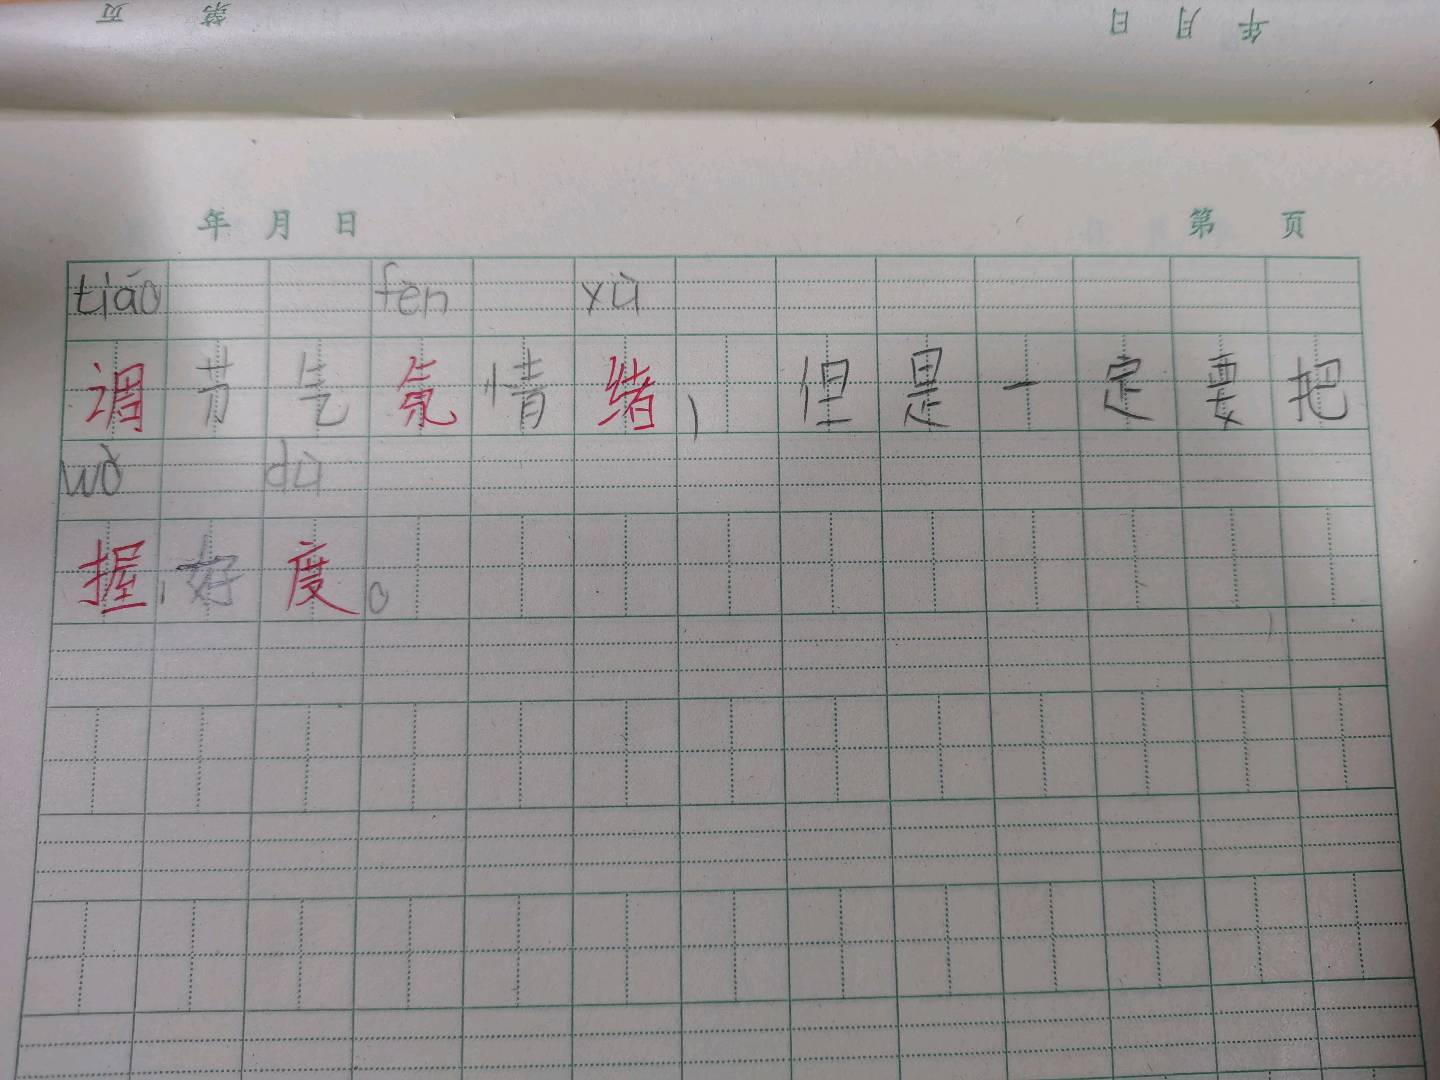 页 第 日 月 年
年 月 日 第 页
tiáo fèn xù
调节气氛情绪，但是一定要把
wò dù
握，好度。